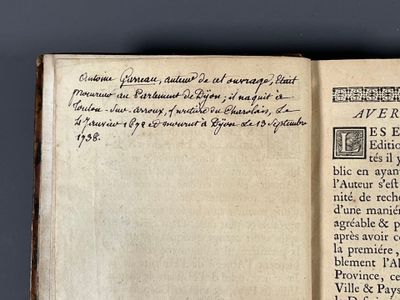 Antoine Garreau, auteur de cet ouvrage, Etait
procureur au Parlement de Dijon; il naquit à
Toulon-sur-arroux, du Charolais, Le
4 Janvier 1672 et mourut à Dijon Le 13 Septembre
1738.
AVER
LES E
Edition
tés il y
blic en ayan
l'Auteur s'est
nité, de reche
d'une maniér
agréable & p
après avoir co
la premiére,
blement l'Al
Province, ce
Ville & Pays